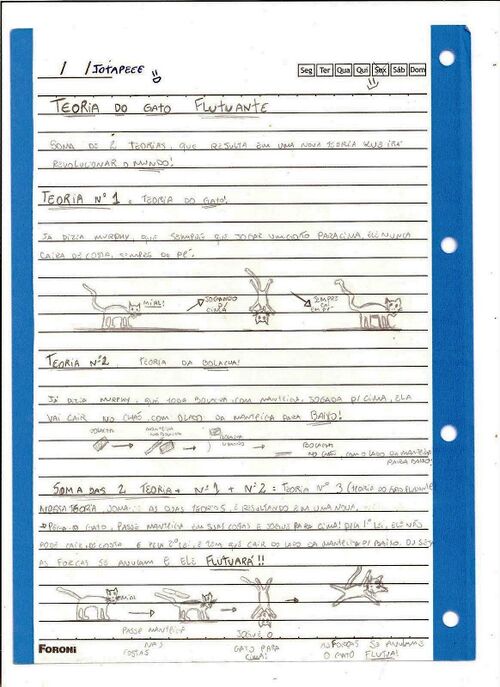 / / JOTAPEEE
Seg Ter Qua Qui Sex Sáb Dom
TEORIA DO GATO FLUTUANTE
SOMA DE 2 TEORIAS, QUE RESULTA EM UMA NOVA TEORIA QUE IRÁ
REVOLUCIONAR O MUNDO!
TEORIA Nº 1 : TEORIA DO GATO!
JÁ DIZIA MURPHY, QUE SEMPRE QUE JOGAR UM GATO PARA CIMA, ELE NUNCA
CAIRA DE COSTA, SEMPRE DE PÉ.
MIAU!
JOGANDO P/ CIMA
SEMPRE CAI EM PÉ
TEORIA Nº 2 TEORIA DA BOLACHA!
JÁ DIZIA MURPHY, QUE TODA BOLACHA COM MANTEIGA, JOGADA P/ CIMA, ELA
VAI CAIR NO CHÃO COM O LADO DA MANTEIGA PARA BAIXO!
BOLACHA
MANTEIGA
BOLACHA
BOLACHA
NO CHÃO, COM O LADO DA MANTEIGA
PARA BAIXO
SOMA DAS 2 TEORIA Nº 1 + Nº 2 = TEORIA Nº 3 (TEORIA DO GATO FLUTUANTE
NOSSA TEORIA SOMA AS DUAS TEORIAS, E RESULTANDO EM UMA NOVA
PEGA O GATO, PASSE MANTEIGA EM SUAS COSTAS E JOGUE PARA CIMA! PELA 1ª LEI, ELE NÃO
PODE CAIR DE COSTA E PELA 2ª LEI, ELE TEM QUE CAIR DO LADO DA MANTEIGA P/ BAIXO. OU SEJA
AS FORÇAS SE ANULAM E ELE FLUTUARÁ!!
MIAU
PASSE MANTEIGA
NAS
COSTAS
JOGUE O
GATO PARA
CIMA!
AS FORÇAS SE ANULAM
O GATO FLUTUA!
FORONI